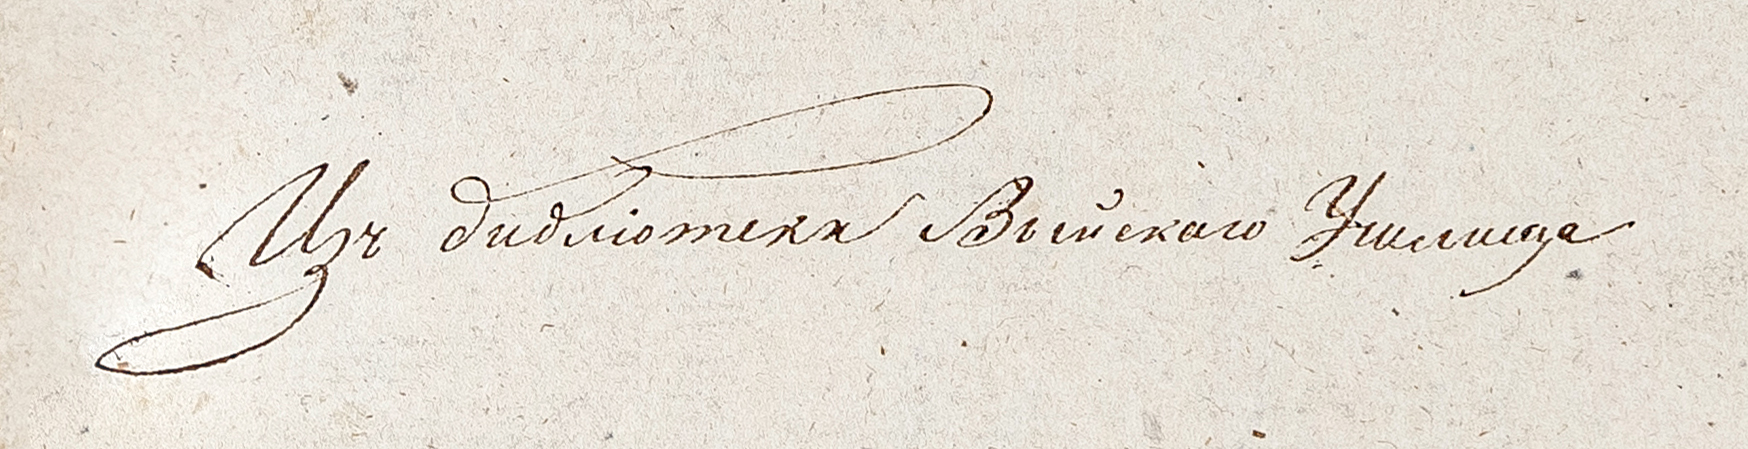 Изъ библіотеки Выйскаго Училища